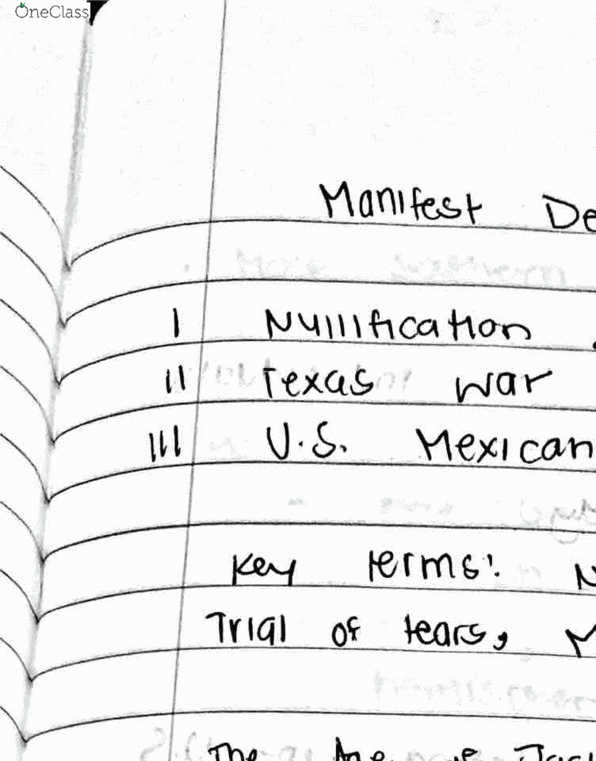 OneClass
Manifest De
I Nullification
II Texas war
III U.S. Mexican
Key terms: N
Trial of tears, M
The Age